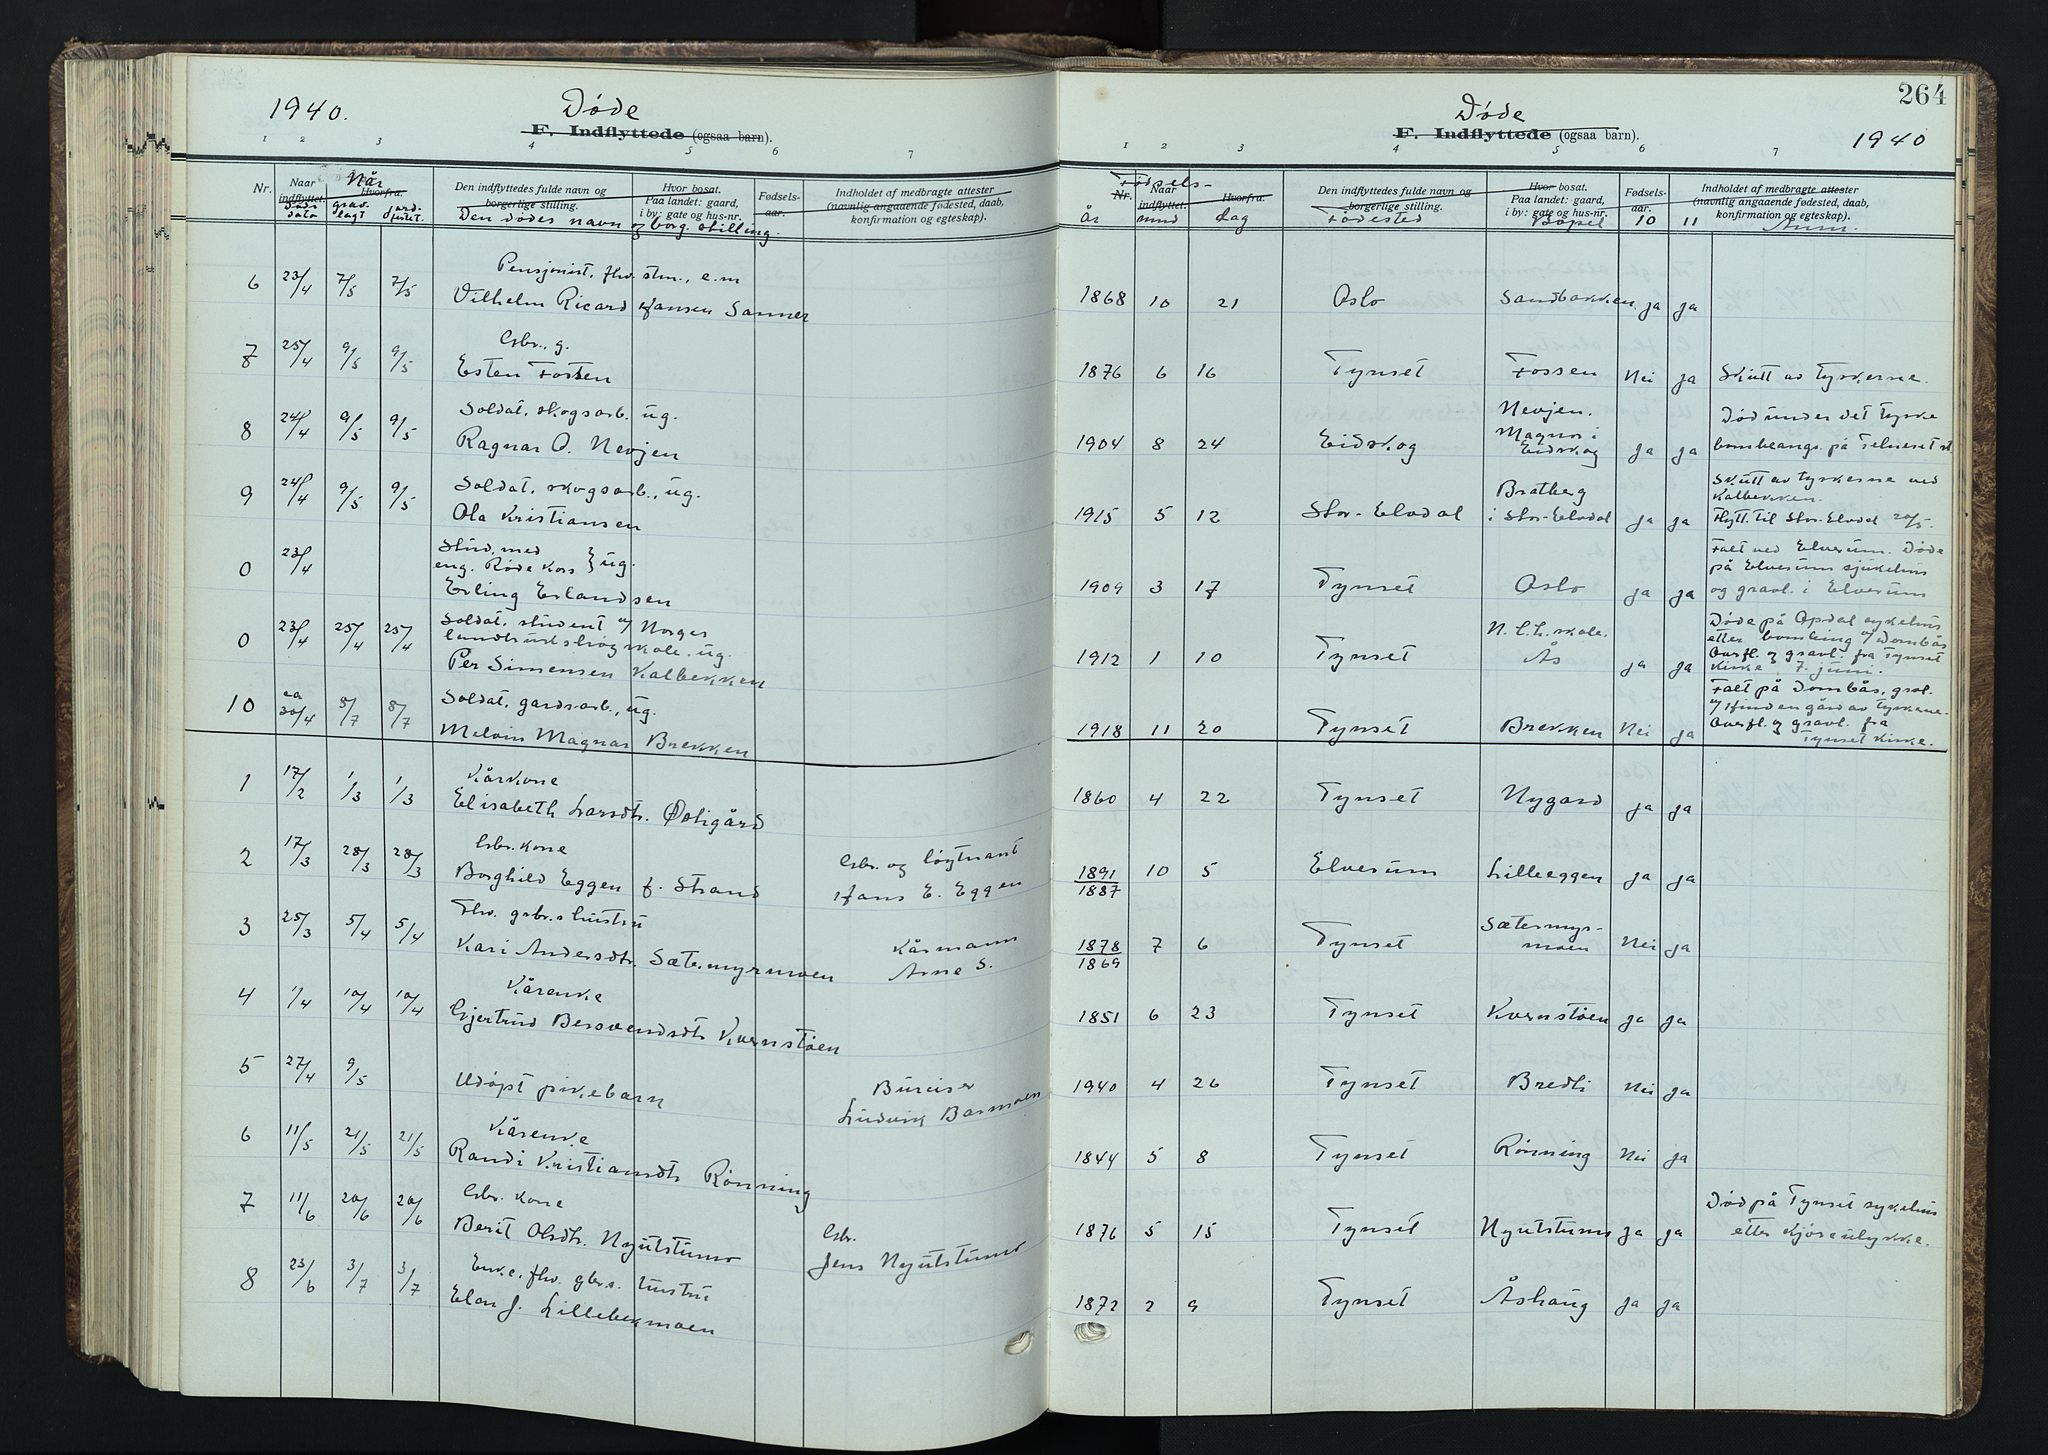 1940.
Døde
F. Indflyttede (ogsaa barn).
1 2 3 4 5 6 7
Nr.
Naar indflyttet.
Døds dato
Når
Hvorfra.
grav-lagt
jord-festet.
Den indflyttedes fulde navn og borgerlige stilling.
Hvor bosat. Paa landet: gaard, i by: gate og hus-nr.
Den dødes navn og borg. stilling.
Fødsels-aar.
Indholdet af medbragte attester (navnlig angaaende fødested, daab, konfirmation og egteskap).
Pensjonist, fhv. stm., e.m
6 23/4 7/5 7/5 Vilhelm Ricard Hansen Sanner
Gbr., g.
7 25/4 9/5 9/5 Esten Fossen
Soldat, skogsarb. ug.
8 24/4 9/5 9/5 Ragnar O. Nevjen
Soldat, skogsarb., ug.
9 24/4 9/5 9/5 Ola Kristiansen
Stud. med
eng. Røde Kors } ug.
0 23/4 Erling Erlandsen
Soldat, student v/ Norges
landbrukshøgskole. ug.
0 23/4 25/4 25/4 Per Simensen Kalbekken
Soldat, gardsarb., ug.
10 ca 30/4 8/7 8/7 Melvin Magnar Brekken
Kårkone
1 17/2 1/3 1/3 Elisabeth Larsdtr. Østigård
Gbr. kone
2 17/3 28/3 28/3 Borghild Eggen f. Strand Gbr. og løytnant
Hans E. Eggen
Fhv. gbr.s hustru
3 25/3 5/4 5/4 Kari Andersdtr. Sætermyrmoen Kårmann
Arne S.
Kårenke
4 1/4 10/4 10/4 Gjertrud Bersvendsdtr Kvernstøen
5 27/4 9/5 Udøpt pikebarn Bureiser
Ludvik Barmoen
Kårenke
6 11/5 21/5 21/5 Randi Kristiansdtr Rønning
Gbr. kone
7 11/6 20/6 20/6 Berit Olsdtr. Nyutstumo Gbr.
Jens Nyutstumo
Enke, fhv. gbr.s. hustru
8 23/6 3/7 3/7 Elen J. Lillebekmoen
264
Døde
F. Indflyttede (ogsaa barn).
1940
1 2 3 4 5 6 7
Fødsels-
Nr.
år
Naar indflyttet.
mnd
Hvorfra.
dag
Den indflyttedes fulde navn og borgerlige stilling.
Fødested
Hvor bosat. Paa landet: gaard, i by: gate og hus-nr.
Bopel
Fødsels-aar.
10 11
Indholdet af medbragte attester (navnlig angaaende fødested, daab, konfirmation og egteskap).
Anm.
1868 10 21 Oslo Sandbakken ja ja
1876 6 16 Tynset Fossen Nei ja Skutt av tyskerne.
Nevjen. Død under det tyske
1904 8 24 Eidskog Magnor i Eidskog ja ja bombeangr. på Telneset st.
Bratberg Skutt av tyskerne ved
Kalbekken.
1915 5 12 Stor-Elvdal i Stor-Elvdal ja ja Flytt. til Stor-Elvdal 20/5.
Falt ved Elverum. Døde
på Elverum sjukehus
1909 3 17 Tynset Oslo ja ja og gravl. i Elverum
Døde på Opdal sykehus
N.L.H.skole. etter bombing v/ Dombås
1912 1 10 Tynset Ås ja ja Overfl. og gravl. fra Tynset
kirke 7. juni.
Falt på Dombås, grav.
v/ Hindengård av tyskerne.
1918 11 20 Tynset Brekken Nei ja Overfl. og gravl. fra
Tynset kirke.
1860 4 22 Tynset Nygard ja ja
1891 10 5 Elverum Lilleeggen ja ja
1887
1878 7 6 Tynset Sætermyr-moen Nei ja
1869
1851 6 23 Tynset Kvernstøen ja ja
1940 4 26 Tynset Bredli Nei ja
1844 5 8 Tynset Rønning Nei ja
Død på Tynset sykehus
1876 5 15 Tynset Nyutstumo ja ja etter kjøreulykke.
1872 2 9 Tynset Åshaug ja ja